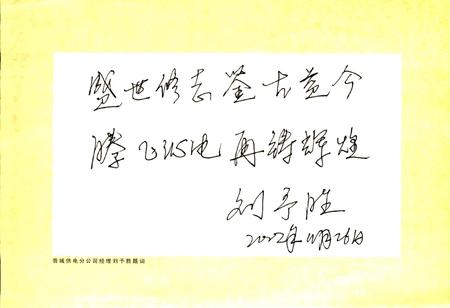 盛世修志鉴古益今
腾飞电再铸辉煌
刘予胜
2002年11月26日
晋城供电分公司经理刘予胜题词